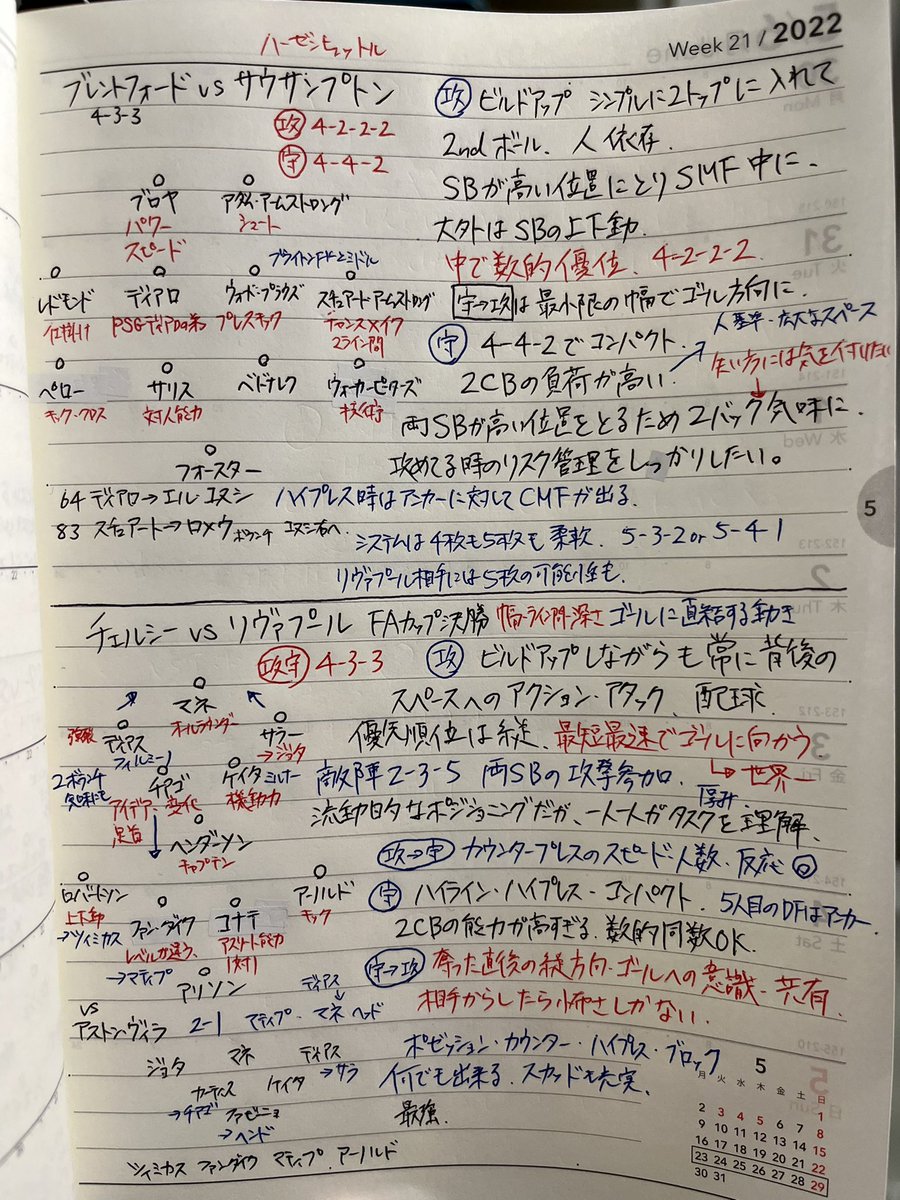 Week 21 / 2022
ハーゼンヒュットル
ブレントフォード vs サウサンプトン
4-3-3
攻 4-2-2-2
守 4-4-2
ブロヤ アダム・アームストロング
パワー シュート
スピード
ブライトンFK ミドル
レドモンド ディアロ ウォード・プラウズ スチュアート・アームストロング
仕掛け PSGディアロの弟 プレスキック チャンスメイク
2ライン間
ペロー サリス ベドナレク ウォーカーピータース
キック・クロス 対人能力
フォースター
64 ディアロ→エル・ユヌシ
83 スチュアート→ロメウ ボランチ ユヌシ右へ
攻 ビルドアップ シンプルに2トップに入れて
2ndボール、人依存.
SBが高い位置にとりSMF中に、
大外はSBの上下動.
中で数的優位、4-2-2-2
守→攻は最小限の幅でゴール方向に.
守 4-4-2でコンパクト. 人基準・大大なスペース
2CBの負荷が高い. 失い方には気を付けたい
両SBが高い位置をとるため2バック気味に.
攻めてる時のリスク管理をしっかりしたい。
ハイプレス時はアンカーに対してCMFが出る.
システムは4枚も5枚も柔軟. 5-3-2 or 5-4-1
リヴァプール相手には5枚の可能性も.
チェルシー vs リヴァプール FAカップ決勝 幅・ライン間・深さ ゴールに直結する動き
攻守 4-3-3
マネ
オールラウンダー
ディアス サラー
フィルミーノ →ジョタ
チアゴ ケイタ ミルナー
2ボランチ気味にも アイデア・変化 機動力
足首
ヘンダーソン
キャプテン
ロバートソン アーノルド
上下動 キック
→ツィミカス ファンダイク コナテ
レベルが違う、 アスリート能力
→マティプ 1対1
アリソン
攻 ビルドアップしながらも常に背後の
スペースへのアクション・アタック、配球
優先順位は縦、最短最速でゴールに向かう
→世界一
敵陣2-3-5 両SBの攻撃参加. 厚み
流動的なポジショニングだが、一人一人がタスクを理解、
攻→守 カウンタープレスのスピード・人数・反応◎
守 ハイライン・ハイプレス・コンパクト. 5人目のDFはアンカー
2CBの能力が高すぎる. 数的同数OK.
守→攻 奪った直後の縦方向・ゴールへの意識・共有
相手からしたら怖さしかない.
vs
アストン・ヴィラ 2-1 マティプ・マネ ヘッド
ディアス
ジョタ マネ ディアス
→サラ
カーティス ケイタ
→チアゴ ファビーニョ
→ヘンド
ツィミカス ファンダイク マティプ アーノルド
ポゼッション・カウンター・ハイプレス・ブロック
何でも出来る. スカッドも充実.
最強.
5
月 火 水 木 金 土 日
1
2 3 4 5 6 7 8
9 10 11 12 13 14 15
16 17 18 19 20 21 22
23 24 25 26 27 28 29
30 31
5